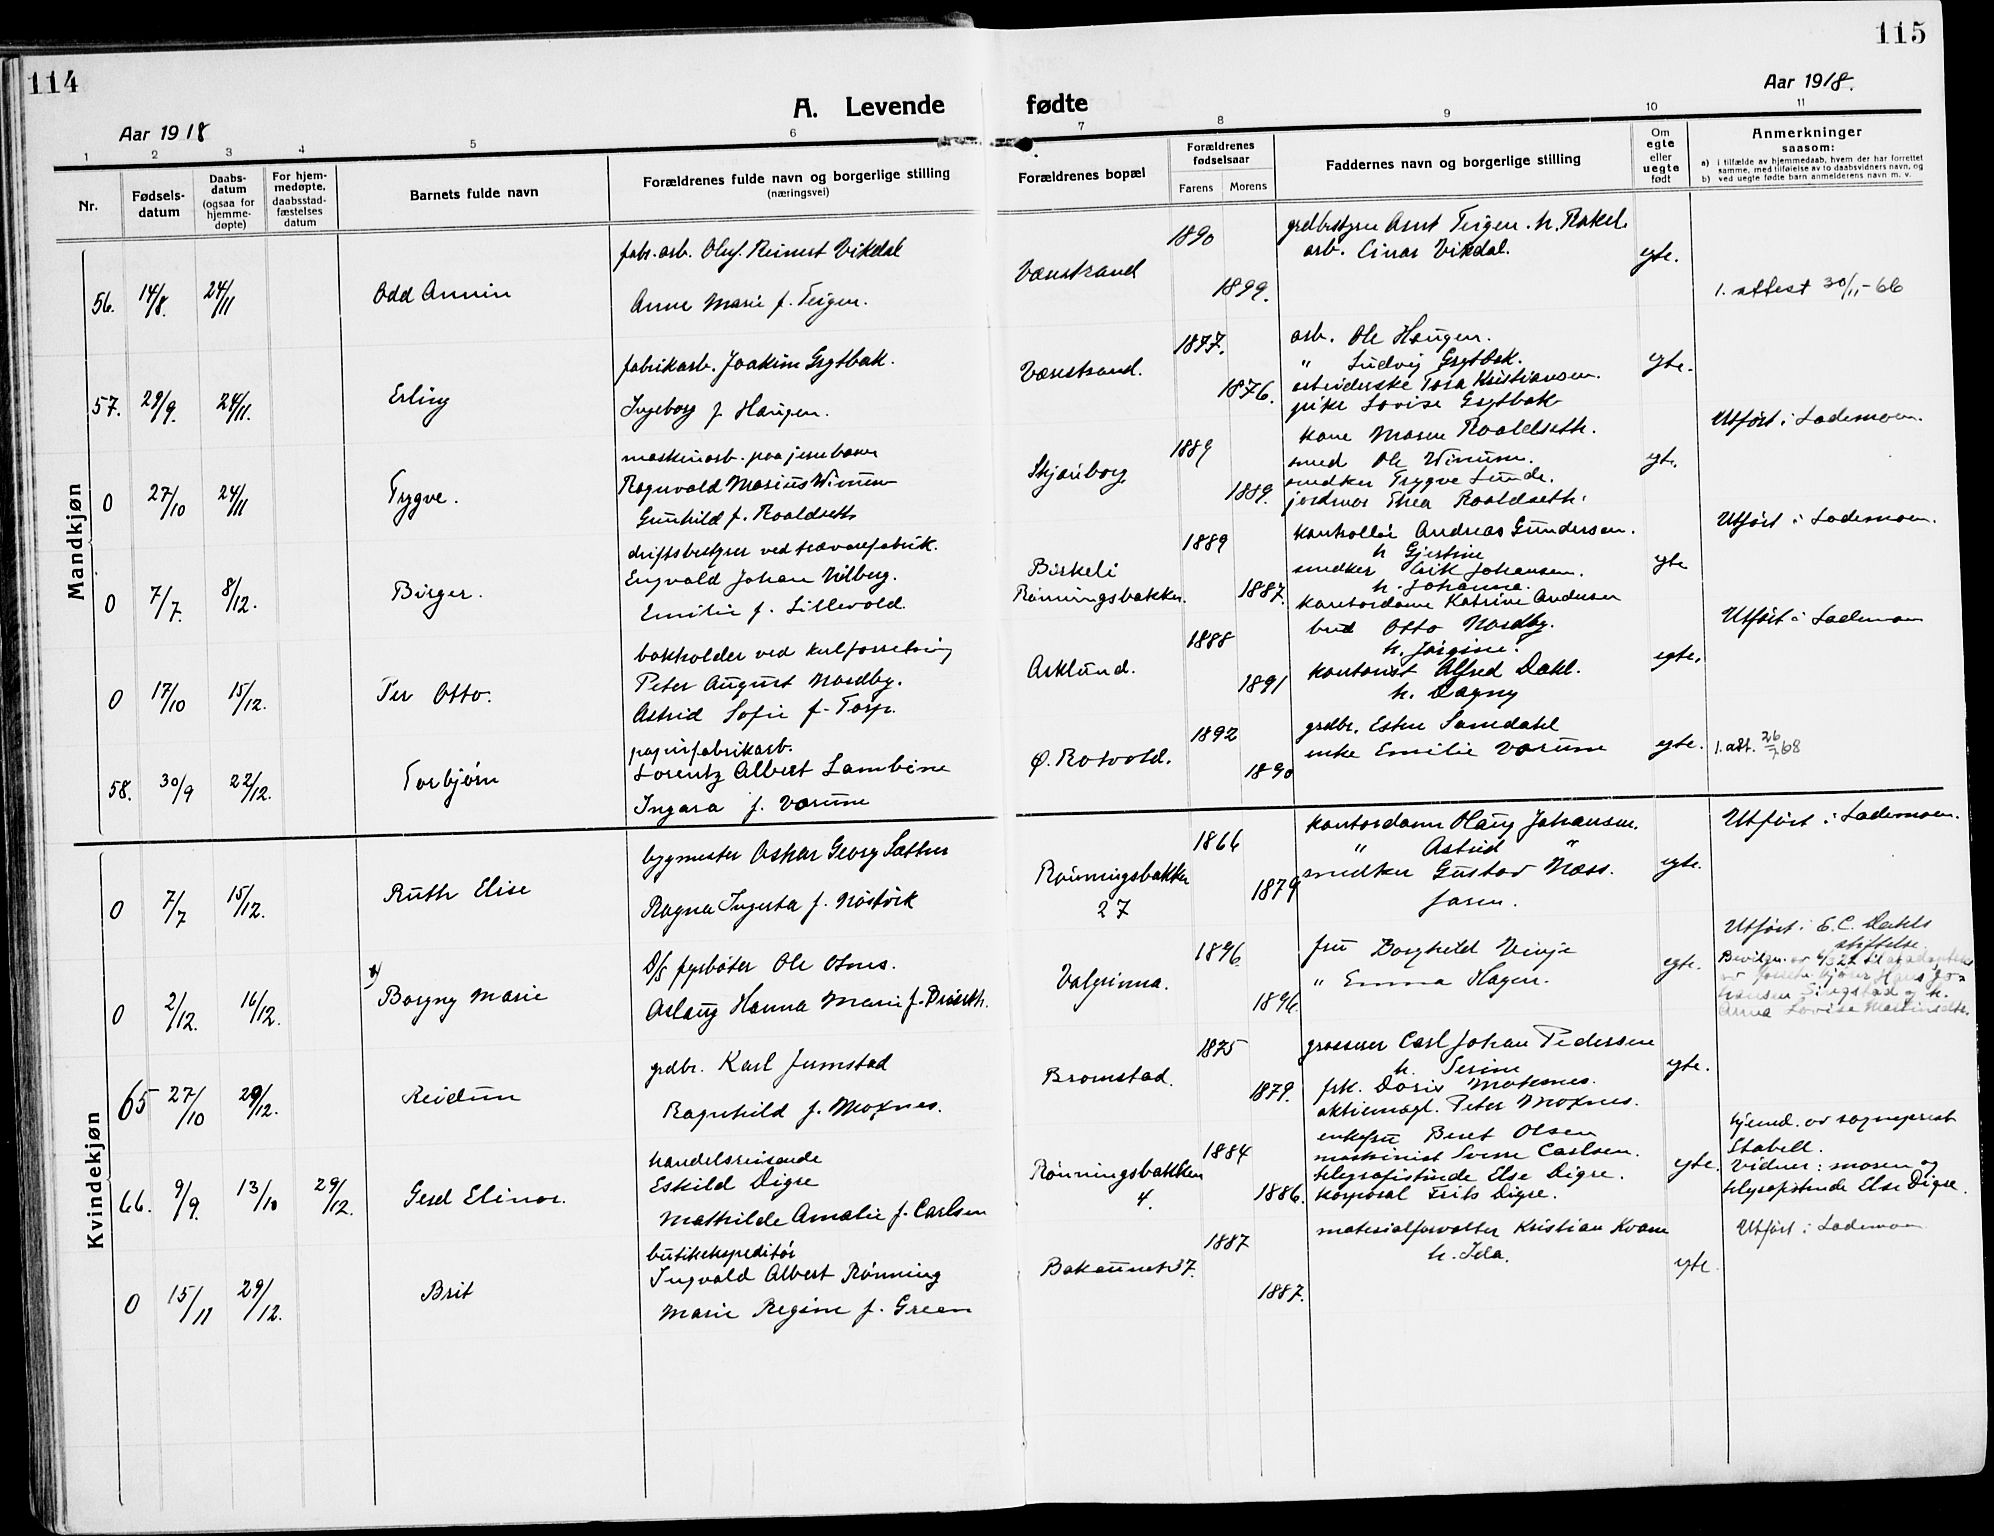 114
115
Aar 1918
A. Levende fødte
Aar 1918.
1 2 3 4 5 6 7 8 9 10 11
Nr.
Fødsels-
datum
Daabs-
datum
(ogsaa for
hjemme-
døpte)
For hjem-
medøpte,
daabsstad-
fæstelses
datum
Barnets fulde navn
Forældrenes fulde navn og borgerlige stilling
(næringsvei)
Forældrenes bopæl
Forældrenes
fødselsaar
Farens Morens
Faddernes navn og borgerlige stilling
Om
egte
eller
uegte
født
Anmerkninger
saasom:
a) i tilfælde av hjemmedaab, hvem der har forrettet
samme, med tilføielse av to daabsvidners navn, og
b) ved uegte fødte barn anmelderens navn m. v.
Mandkjøn
56. 14/8. 24/11 Odd Armin
fabr. arb. Oluf Reinert Vikdal
Anne Marie f. Teigen.
Værestrand
1890
1899.
grdbestyrer Arnt Teigen. h. Rakel
arb. Einar Vikdal.
egte.
1. attest 30/11-66
57. 29/9. 24/11. Erling
fabrikarb. Joakim Grytbak.
Ingeborg f. Haugen.
Værestrand.
1877.
1876.
arb. Ole Haugen.
" Ludvig Grytbak.
arbeiderske Tora Kristiansen.
pike Lovise Grytbak
egte.
0 27/10 24/11 Trygve.
maskinarb. paa jernbanen
Ragnvald Marius Winum
Gunhild f. Roaldseth
Skjønborg
1889
1889.
kone Maren Roaldseth.
smed Ole Winum.
snedker Trygve Lunde.
jordmor Thea Roaldseth.
egte.
Utført i Lademoen.
0 7/7. 8/12. Birger.
driftsbestyrer ved trævarefabrik.
Engvald Johan Vilberg.
Emilie f. Lillevold.
Birkeli
Rønningsbakken.
1889
1887.
kontrollør Andreas Gundersen.
h Gjertine
snedker Erik Johansen.
h. Johanna.
kontordame Katrine Andersen
egte
Utført i Lademoen.
0 17/10 15/12. Per Otto.
bokholder ved kulforretning
Peter August Nordby.
Astrid Sofie f. Torp.
Asklund.
1888
1891
bud Otto Nordby.
h. Jørgine.
kontorist Alfred Dahl.
h. Dagny
egte.
Utført i Lademoen
58. 30/9 22/12. Torbjørn
papirfabrikarb.
Lorentz Albert Lambine
Ingara f. Værum
Ø. Rotvold.
1892
1890
grdbr. Ester Samdahl
enke Emilie Værum
egte.
1. att. 26/768
Kvindekjøn
0 7/7 15/12. Ruth Elise
bygmester Oskar Georg Sætter
Ragna Ingerta f. Nøstvik
Rønningsbakken
27
1866
1879
kontordame Olaug Johansen.
" Astrid "
snedker Gustav Næss.
faren.
egte.
Utført i Lademoen.
0 2/12. 16/12. Borgny Marie
D/S fyrbøter Ole Osnes.
Aslaug Hanna Marie f.
Valgrinna.
1896
1896.
fru Borghild Vinje
" Emma Hagen.
egte.
Utført i E.C. Dahls
stiftelse
Anna Lovise
65 27/10 29/12. Reidun
grdbr. Karl Jumstad
Ragnhild f. Moxnes.
Bromstad.
1875
1879.
grosserer Carl Johan Pedersen
h. Serine
frk. Doris Moxnes.
aktiemægl. Peter Moxnes.
egte.
66. 9/9. 13/10 29/12. Gerd Elinor.
handelsreisende
Eskild Digre
Mathilde Amalie f. Carlsen
Rønningsbakken
4.
1884
1886.
enkefru Beret Olsen
maskinist Sverre Carlsen.
telegrafistinde Else Digre.
korporal Frits Digre.
egte.
hjemd. av sogneprest
Stabell.
Vidner: moren og
telegrafistinde Else Digre.
0 15/11 29/12. Brit
butikekspeditør
Ingvald Albert Rønning
Marie Regine f. Green
Bakaunet 37.
1887
1887.
materialforvalter Kristian Kvam
h. Ida.
egte
Utført i Lademoen